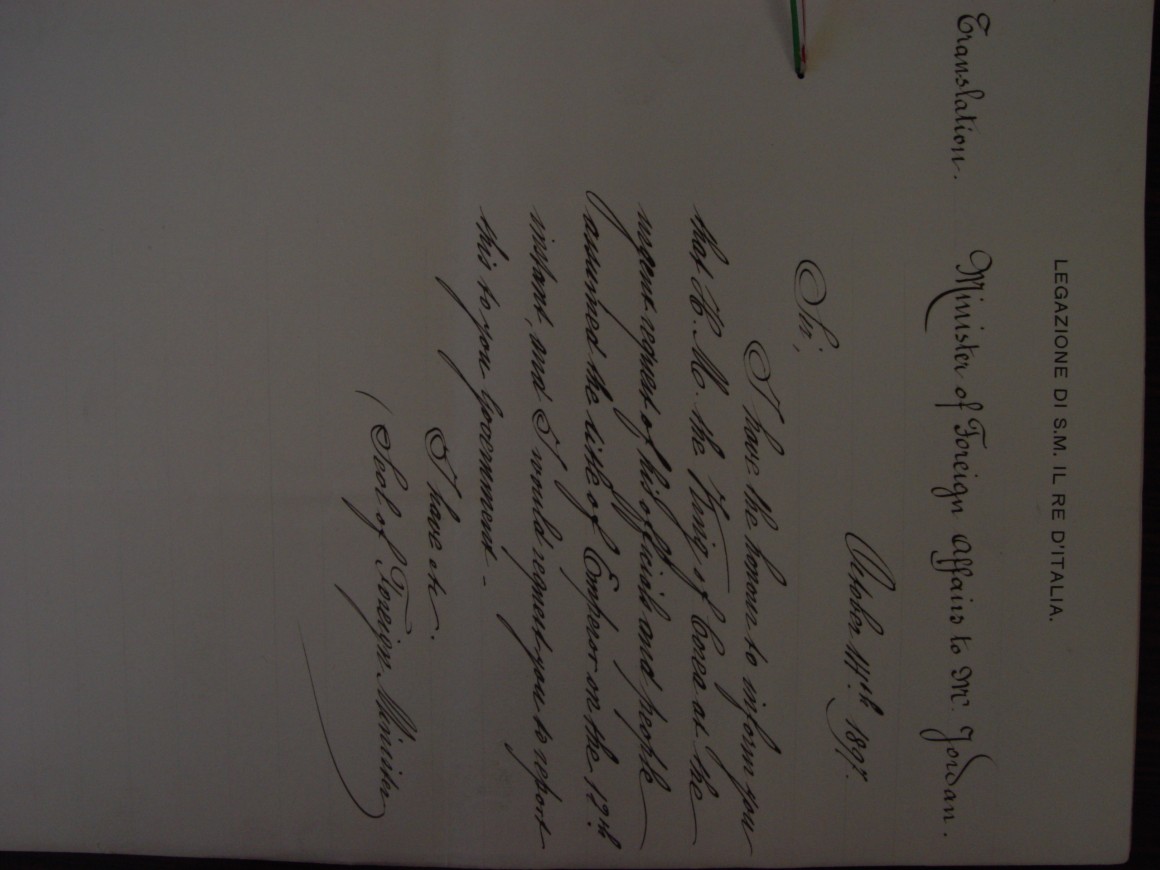 LEGAZIONE DI S.M. IL RE D'ITALIA.
Translation.
Minister of Foreign Affairs to Mr. Jordan.
October 14th. 1897.
Sir,
I have the honour to inform you
that H. M. the King of Corea at the
urgent request of his officials and people
assumed the title of Emperor on the 12th
instant, and I would request you to report
this to your Government -
I have etc.
(Seal of Foreign Minister)